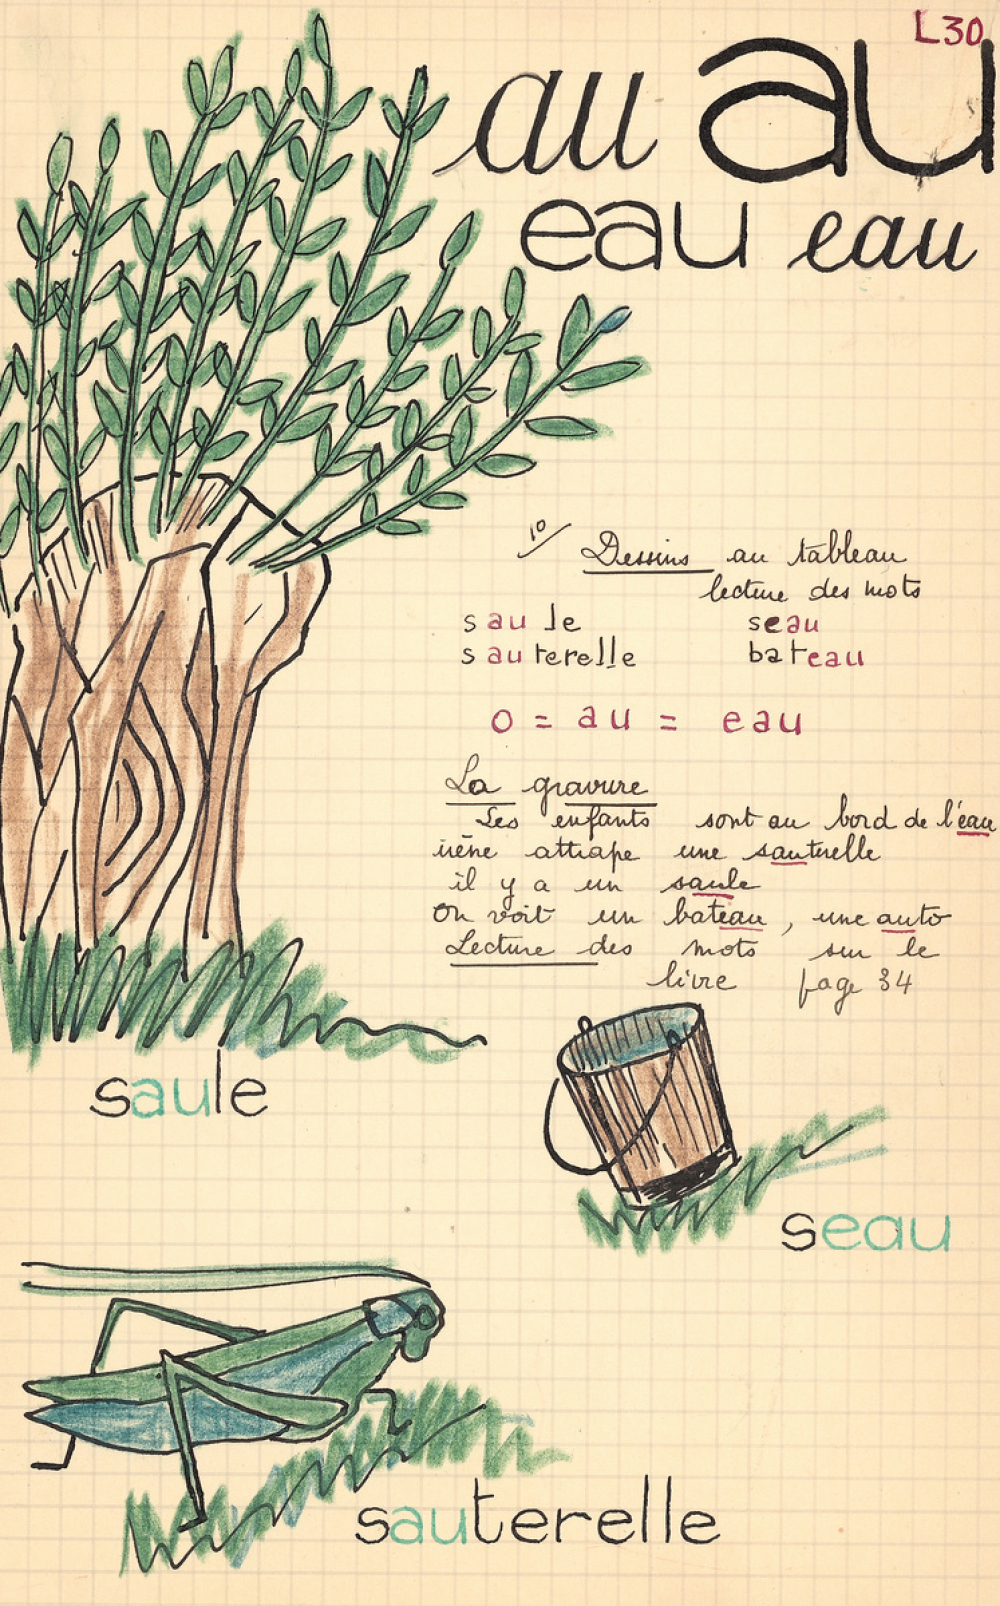 L30
au au
eau eau
1º/ Dessins au tableau
lecture des mots
saule seau
sauterelle bateau
o = au = eau
La gravure
Les enfants sont au bord de l'eau
irène attrape une sauterelle
il y a un saule
On voit un bateau, une auto
Lecture des mots sur le
livre page 34
saule
seau
sauterelle